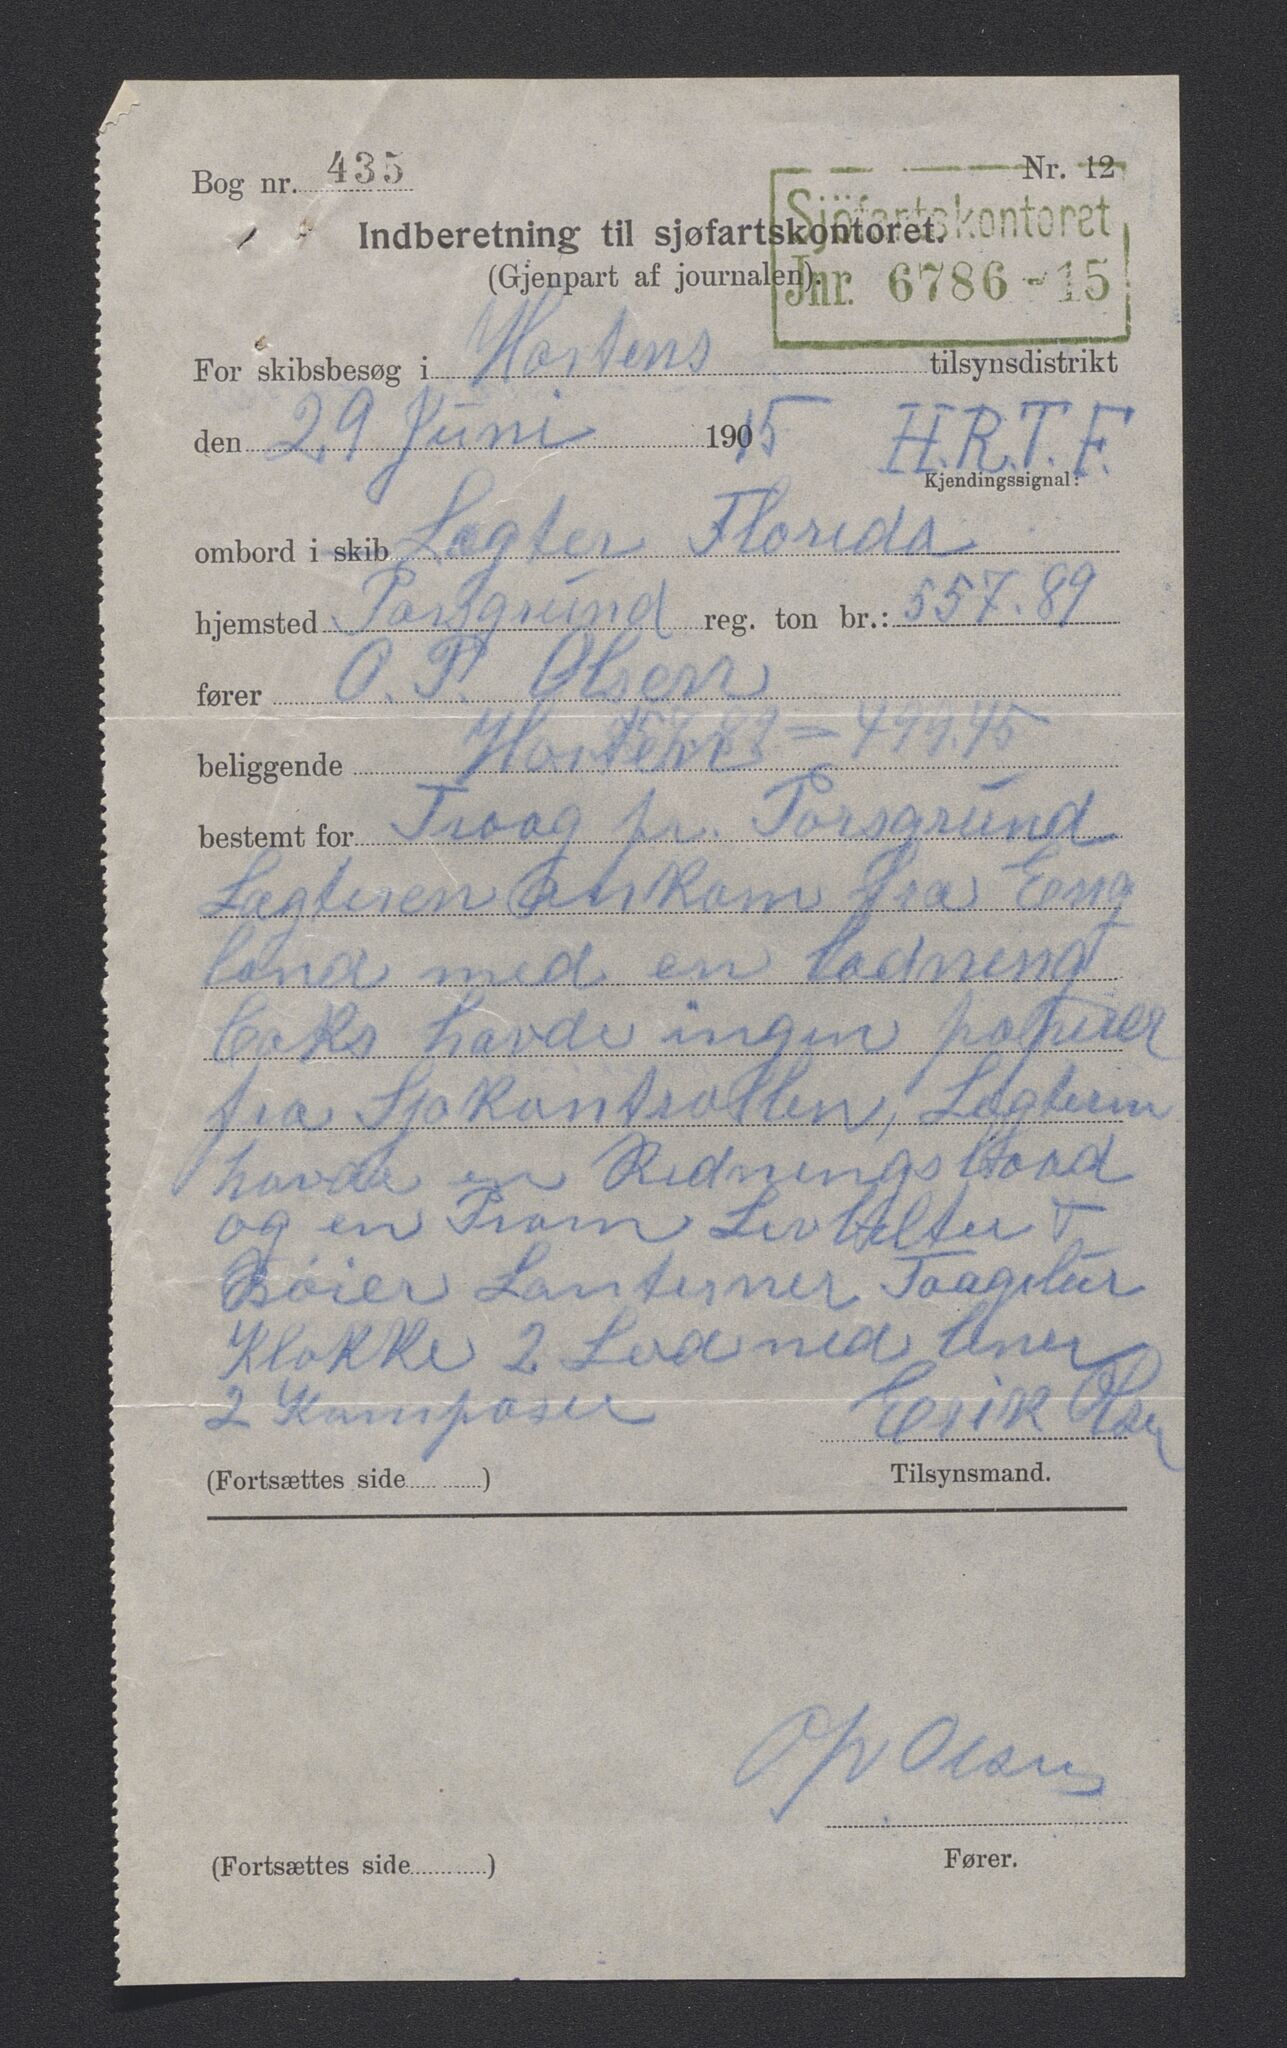 Bog nr. 435
Nr. 12
Sjöfartskontoret
Jnr. 6786-15
Indberetning til sjøfartskontoret.
(Gjenpart af journalen).
For skibsbesøg i Hortens tilsynsdistrikt
den 29 Juni 1915
H.R.T.F.
Kjendingssignal:
ombord i skib Lægter Florida
hjemsted Porsgrund reg. ton br.: 557.89
fører O. P. Olsen
= 499.45
beliggende Horten
bestemt for Traag pr. Porsgrund
Lægteren ankom fra Eng
land med en ladning
Coks havde ingen papirer
fra Sjøkontrollen, Lægteren
havde en Redningsbaad
og en Pram Livbelter +
Bøier Lanterner Taagelur
Klokke 2 Lod med liner
2 Kompaser Erik Olsen
(Fortsættes side )
Tilsynsmand.
OP Olsen
(Fortsættes side )
Fører.